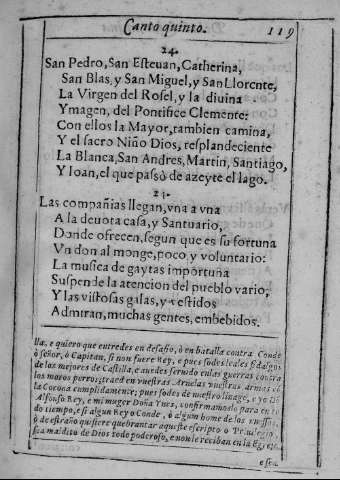 Canto quinto. 119
24.
San Pedro, San Esteuan, Catherina,
San Blas, y San Miguel, y San Llorente,
La Virgen del Rosel, y la diuina
Ymagen, del Pontifice Clemente:
Con ellos la Mayor, tambien camina,
Y el sacro Niño Dios, resplandeciente
La Blanca, San Andres, Martin, Santiago,
Y Ioan, el que passò de azeyte el lago.
25.
Las compañias llegan, vna a vna
A la deuota casa, y Santuario,
Donde ofrecen, segun que es su fortuna
Vn don al monge, poco y voluntario:
La musica de gaytas importuna
Suspende la atencion del pueblo vario,
Y las vistosas galas, y vestidos
Admiran, muchas gentes, embebidos.
lla, e quiero que entredes en desafio, ò en batalla contra Conde
ò señor, ò Capitan, si non fuere Rey, e pues sodes leales fidalgos
de los mejores de Castilla, e auedes seruido en las guerras contra
los moros perros; traed en vuestras Armas
la Corona cumplidamente; pues sodes de nuestro linage, e yo Dõ
Alfonso Rey, e mi muger Doña Ynes, confirmamoslo para en to
do tiempo, e si algun Rey o Conde, ò algun home de los nuestros,
ò de estraño quisiere quebrantar aqueste escripto o Preuilegio,
sea maldito de Dios todo poderoso, e non le reciban en la Egresia,